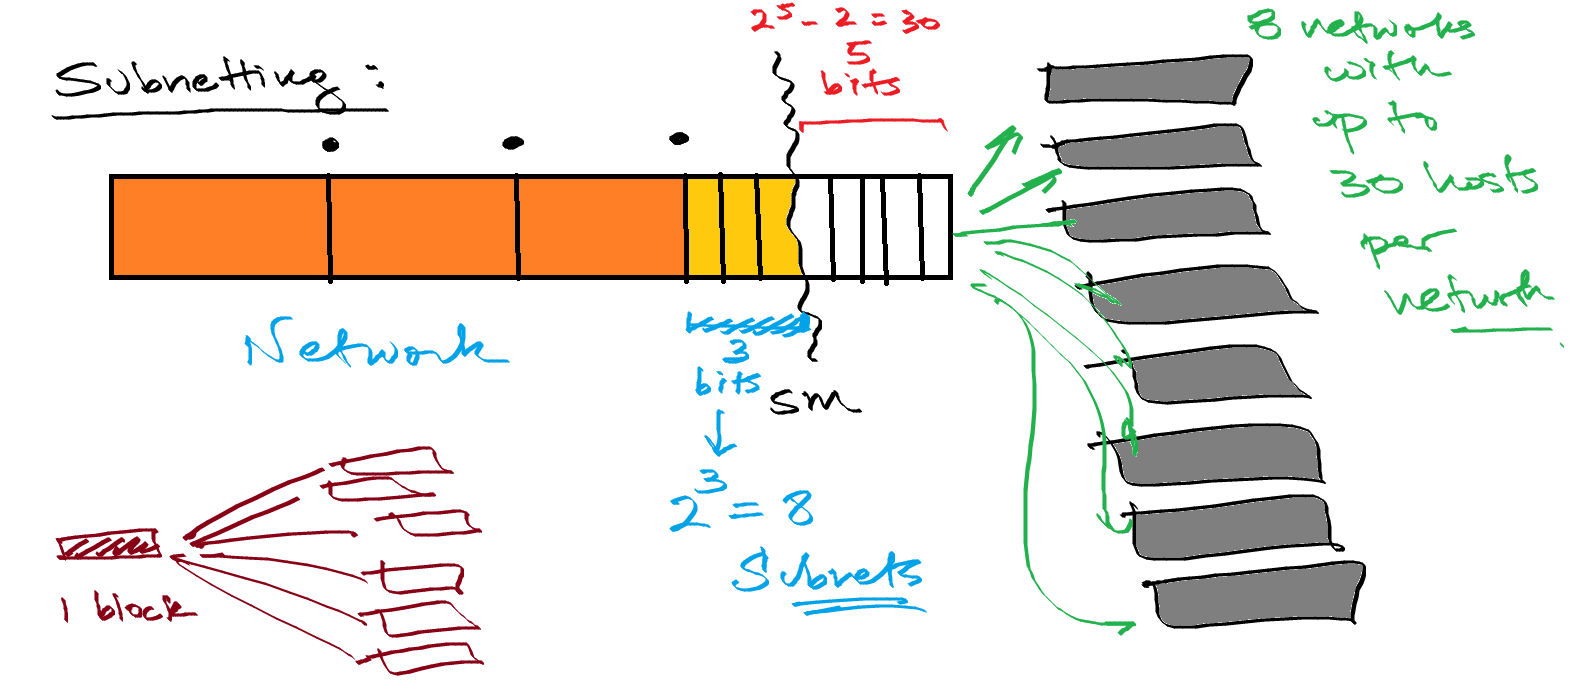 Subnetting:
2⁵ - 2 = 30
5
bits
8 networks
with
up to
30 hosts
per
network
Network
3
bits
sm
2³ = 8
Subnets
1 block